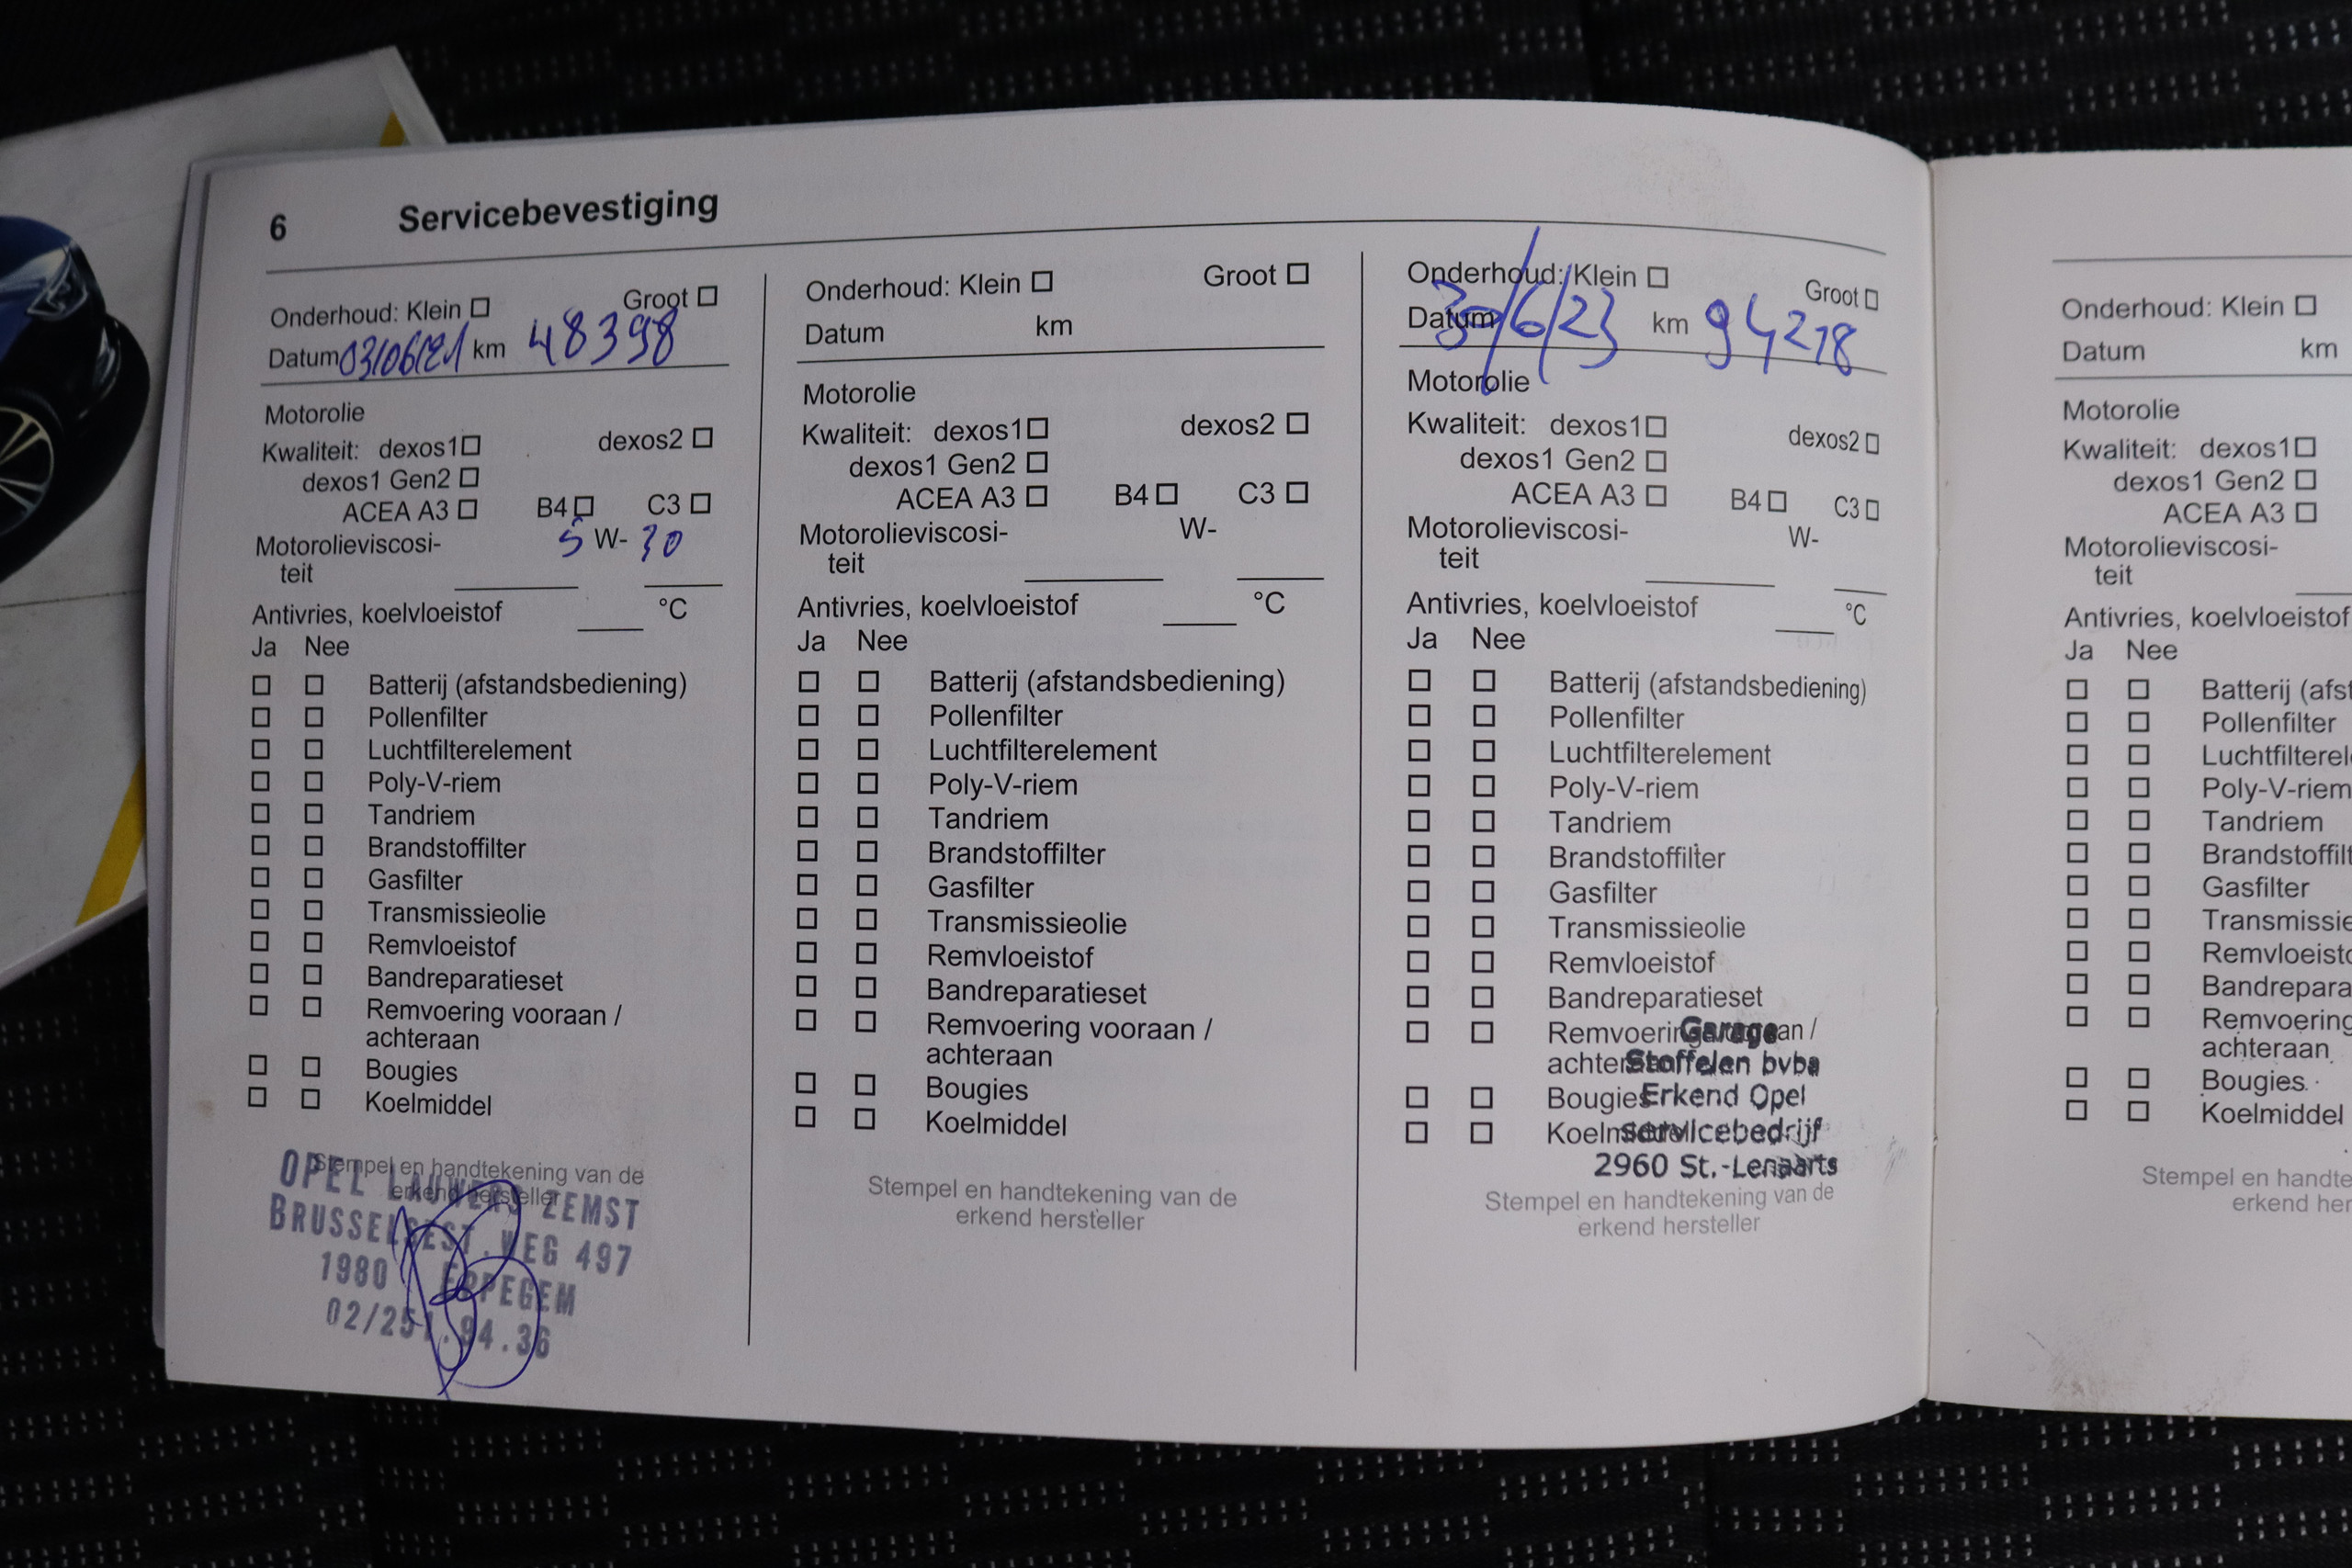 6 Servicebevestiging
Onderhoud: Klein ☐ Groot ☐
Datum 03/06/21 km 48398
Motorolie
Kwaliteit: dexos1 ☐ dexos2 ☐
dexos1 Gen2 ☐
ACEA A3 ☐ B4 ☐ C3 ☐
Motorolieviscosi- 5 W- 30
teit
Antivries, koelvloeistof °C
Ja Nee
☐ ☐ Batterij (afstandsbediening)
☐ ☐ Pollenfilter
☐ ☐ Luchtfilterelement
☐ ☐ Poly-V-riem
☐ ☐ Tandriem
☐ ☐ Brandstoffilter
☐ ☐ Gasfilter
☐ ☐ Transmissieolie
☐ ☐ Remvloeistof
☐ ☐ Bandreparatieset
☐ ☐ Remvoering vooraan /
achteraan
☐ ☐ Bougies
☐ ☐ Koelmiddel
Stempel en handtekening van de
erkend hersteller
OPEL LAUWERS ZEMST
BRUSSELSEST.WEG 497
1980 EPPEGEM
02/251.94.36
Onderhoud: Klein ☐ Groot ☐
Datum km
Motorolie
Kwaliteit: dexos1 ☐ dexos2 ☐
dexos1 Gen2 ☐
ACEA A3 ☐ B4 ☐ C3 ☐
Motorolieviscosi- W-
teit
Antivries, koelvloeistof °C
Ja Nee
☐ ☐ Batterij (afstandsbediening)
☐ ☐ Pollenfilter
☐ ☐ Luchtfilterelement
☐ ☐ Poly-V-riem
☐ ☐ Tandriem
☐ ☐ Brandstoffilter
☐ ☐ Gasfilter
☐ ☐ Transmissieolie
☐ ☐ Remvloeistof
☐ ☐ Bandreparatieset
☐ ☐ Remvoering vooraan /
achteraan
☐ ☐ Bougies
☐ ☐ Koelmiddel
Stempel en handtekening van de
erkend hersteller
Onderhoud: Klein ☐ Groot ☐
Datum 30/6/23 km 94218
Motorolie
Kwaliteit: dexos1 ☐ dexos2 ☐
dexos1 Gen2 ☐
ACEA A3 ☐ B4 ☐ C3 ☐
Motorolieviscosi- W-
teit
Antivries, koelvloeistof °C
Ja Nee
☐ ☐ Batterij (afstandsbediening)
☐ ☐ Pollenfilter
☐ ☐ Luchtfilterelement
☐ ☐ Poly-V-riem
☐ ☐ Tandriem
☐ ☐ Brandstoffilter
☐ ☐ Gasfilter
☐ ☐ Transmissieolie
☐ ☐ Remvloeistof
☐ ☐ Bandreparatieset
☐ ☐ Remvoering vooraan /
achteraan
☐ ☐ Bougies
☐ ☐ Koelmiddel
Garage
Stoffelen bvba
Erkend Opel
servicebedrijf
2960 St.-Lenaarts
Stempel en handtekening van de
erkend hersteller
Onderhoud: Klein ☐
Datum km
Motorolie
Kwaliteit: dexos1 ☐
dexos1 Gen2 ☐
ACEA A3 ☐
Motorolieviscosi-
teit
Antivries, koelvloeistof
Ja Nee
☐ ☐ Batterij (afst
☐ ☐ Pollenfilter
☐ ☐ Luchtfilterel
☐ ☐ Poly-V-riem
☐ ☐ Tandriem
☐ ☐ Brandstoffilt
☐ ☐ Gasfilter
☐ ☐ Transmissie
☐ ☐ Remvloeisto
☐ ☐ Bandrepara
☐ ☐ Remvoering
achteraan
☐ ☐ Bougies
☐ ☐ Koelmiddel
Stempel en handte
erkend her